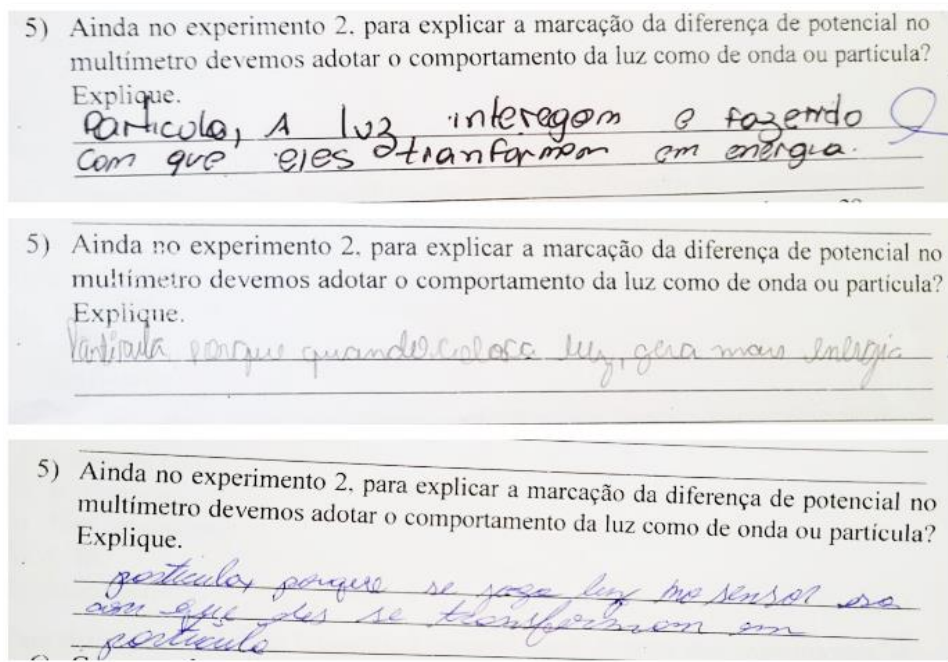 5) Ainda no experimento 2. para explicar a marcação da diferença de potencial no
multímetro devemos adotar o comportamento da luz como de onda ou partícula?
Explique.
Particula, A luz interegem e fazendo
com que eles tranformam em energia.
5) Ainda no experimento 2. para explicar a marcação da diferença de potencial no
multímetro devemos adotar o comportamento da luz como de onda ou partícula?
Explique.
Particula porque quando coloca luz, gera mais energia
5) Ainda no experimento 2. para explicar a marcação da diferença de potencial no
multímetro devemos adotar o comportamento da luz como de onda ou partícula?
Explique.
particula, porque se joga luz no sensor
com que eles se transformam em
particula